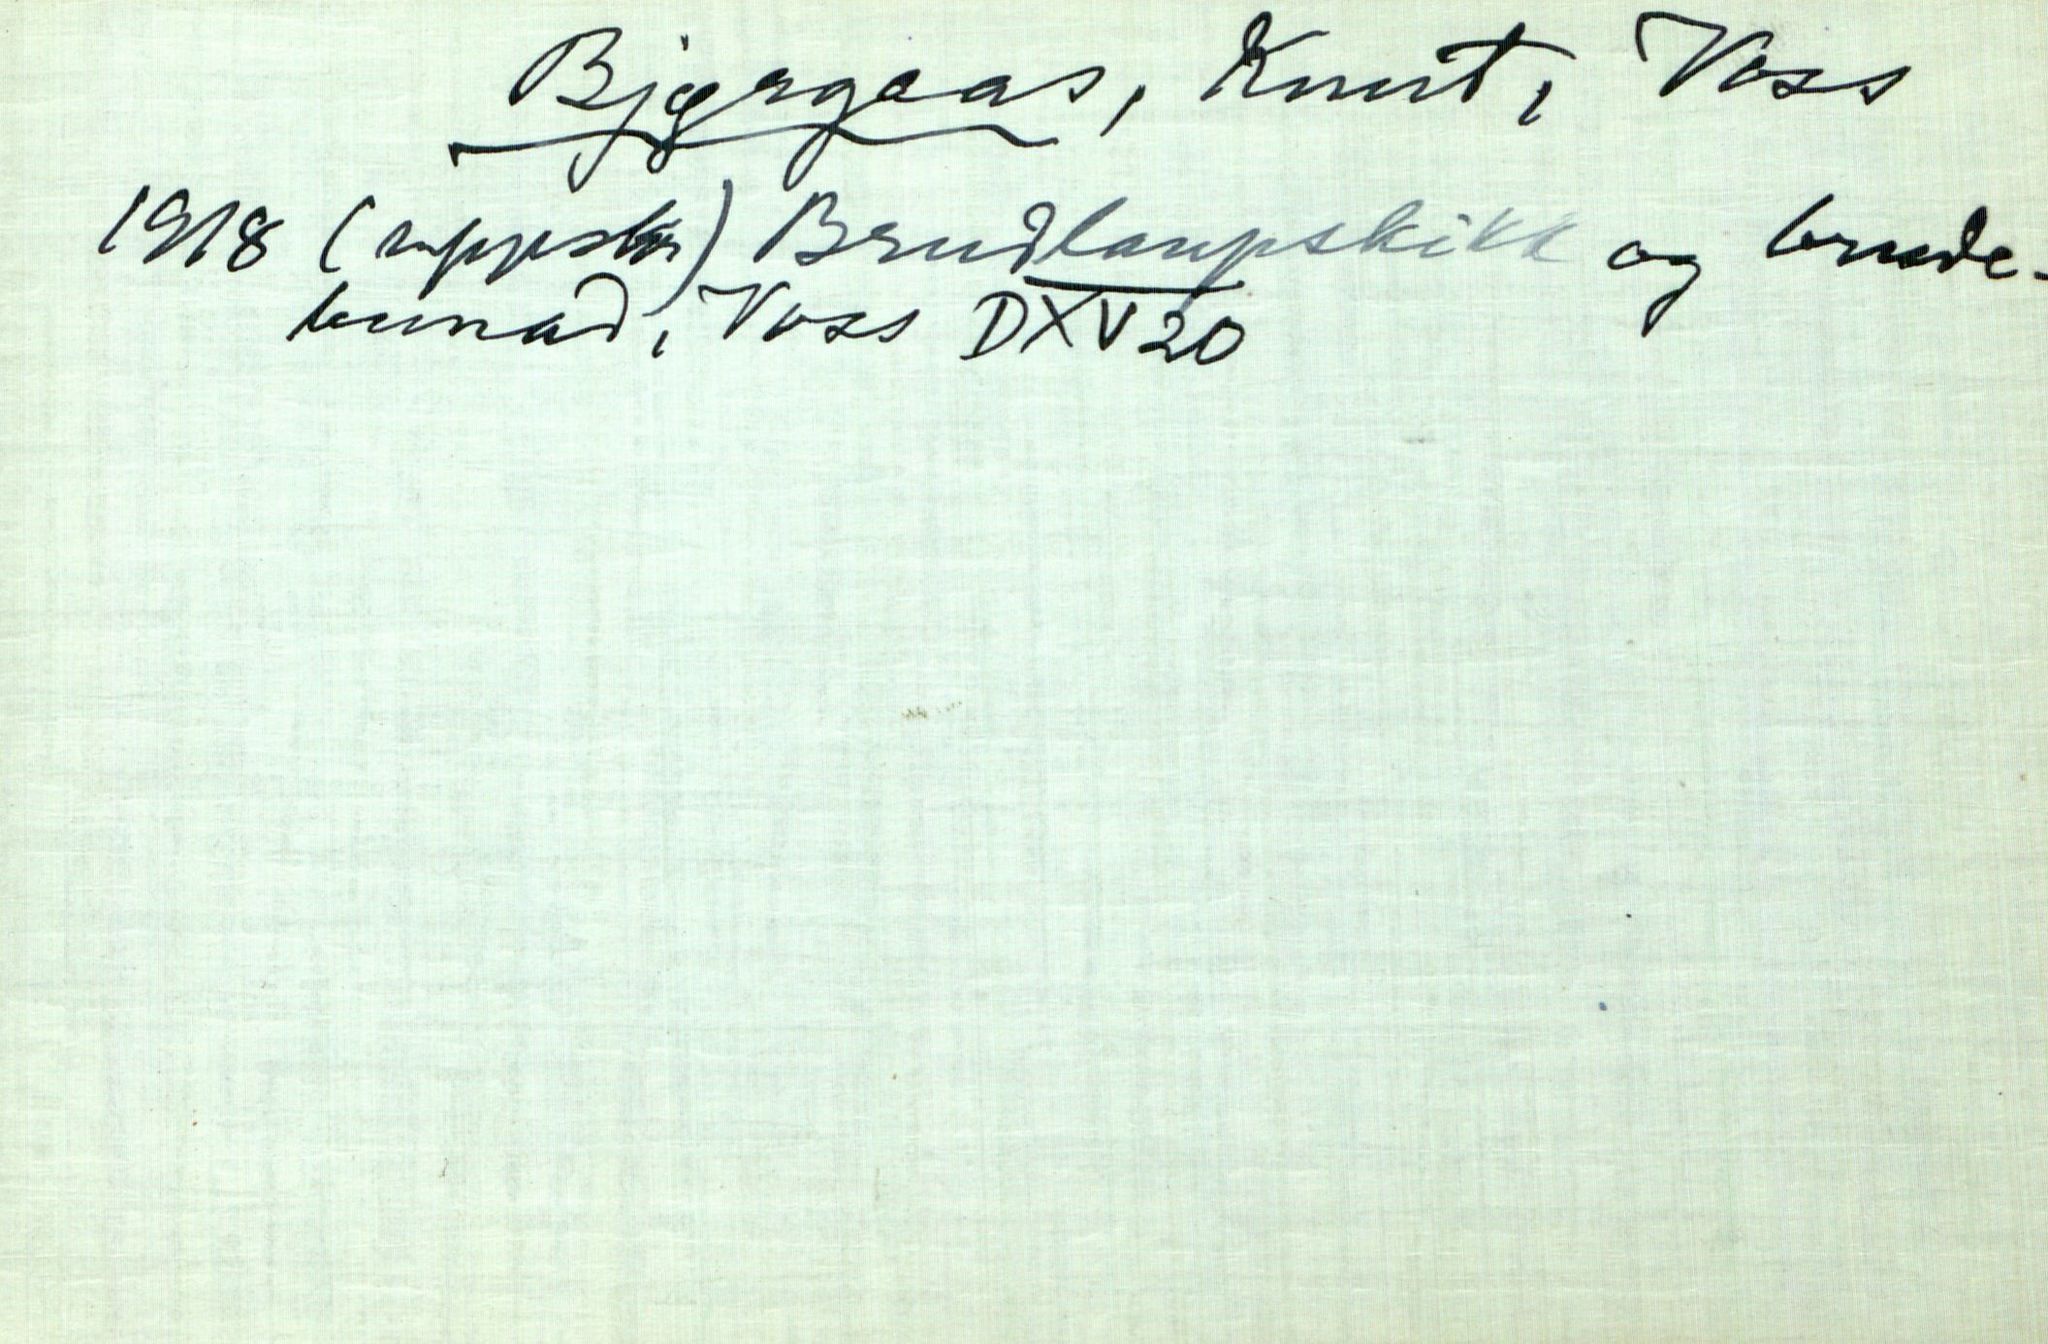 Bjørgaas, Knut, Voss
1918 (uppskr) Brudlaupskikk og brude-
bunad, Voss DXV20